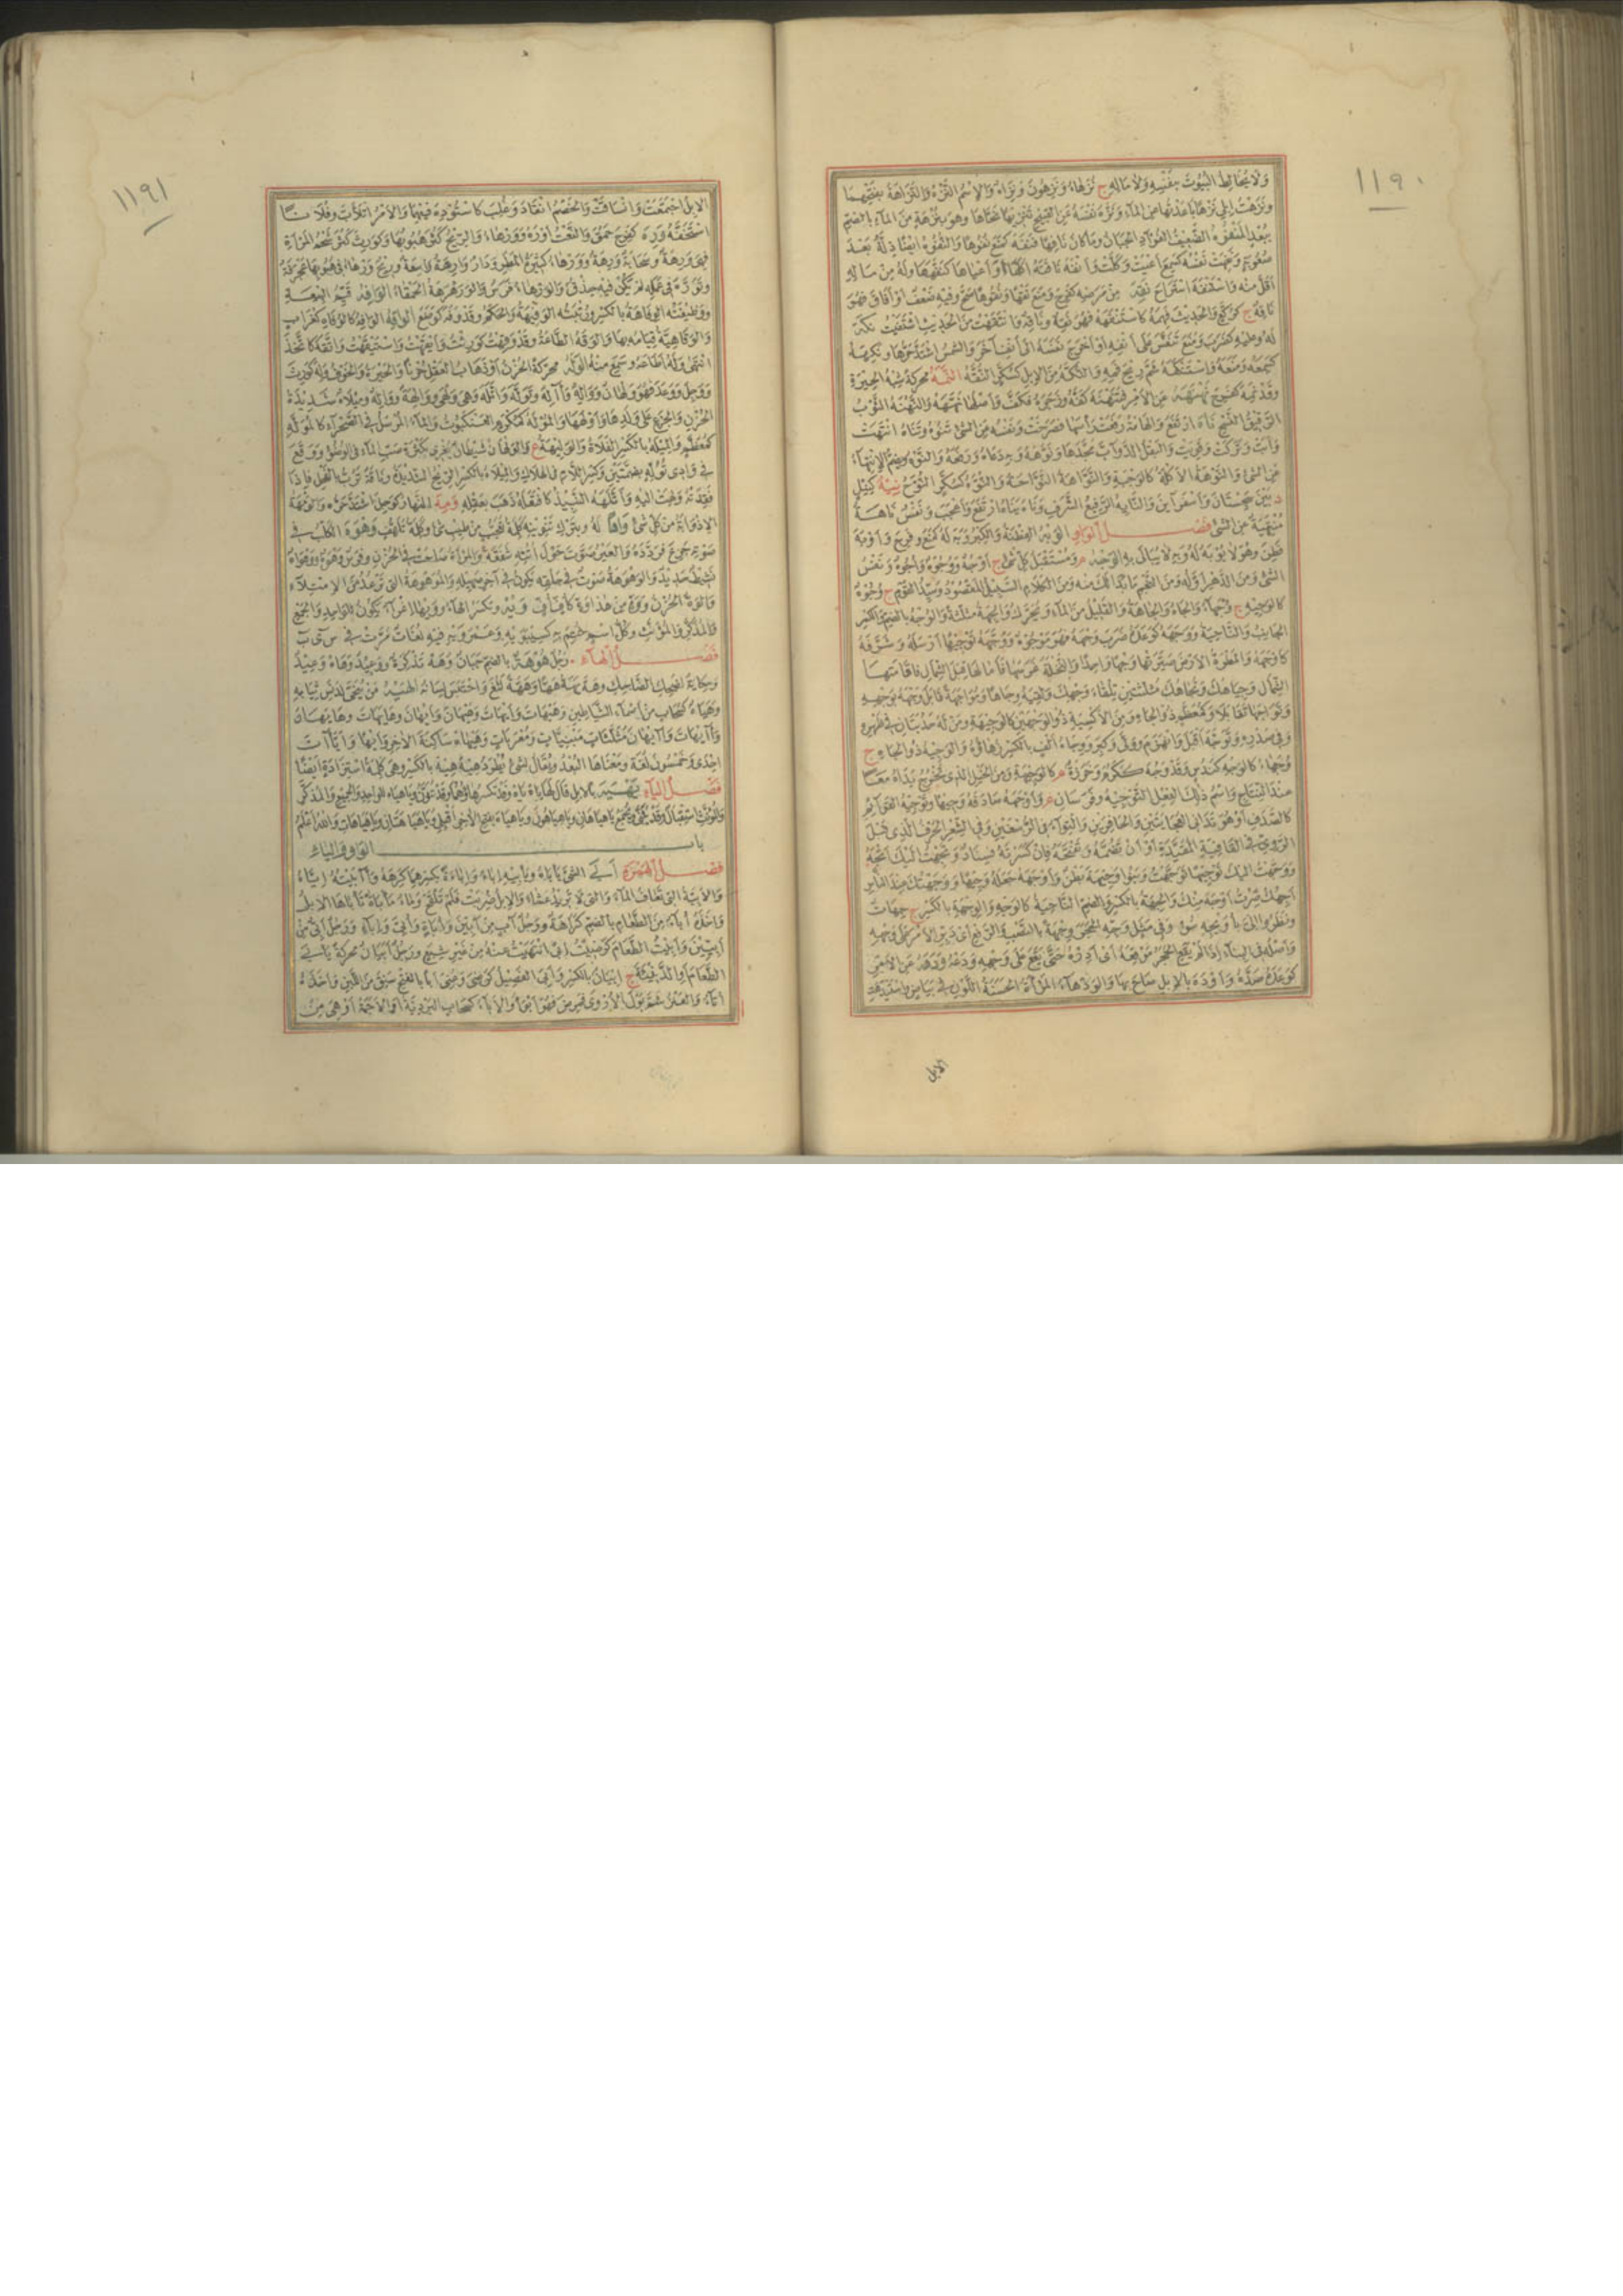 ١١٩٠
ولا يخالط البيوت بنفسه ولا ماله ج نزهاء ونزهون ونزاه والاسم النزه والنزاهة بفتحهما
ونزهت ابلي نزها باعدتها عن الماء ونزه نفسه عن القبيح تنزيها نحاها وهو بنزهة من الماء بالضم
ببعد المنفوه الضعيف الفؤاد الجبان وما كان نافها فنفه كمنع نفوها والنفوه ايضا ذلة بعد
صعوبة ونفهت نفسه كسمع اعيت وكلت وانفه ناقته اكلها واعياها كنفهها وله من ماله
اقل منه واستنفه استراح نقه من مرضه كفرح ومنع نقها ونقوها صح وفيه ضعف او افاق فهو
ناقه ج كركع والحديث فهمه كاستنقهه فهو نقه وناقه وانتقهت من الحديث اشتفيت نكه
له وعليه كضرب ومنع تنفس على انفه او اخرج نفسه الى انف آخر والشمس اشتد حرها ونكهه
كسمعه ومنعه واستنكهه شم ريح فمه والنكه من الابل كسكر النقه النمه محركة شبه الحيرة
وقد نمه كفرح نهنهه عن الامر فتنهنه كفه وزجره فكف واصلها نههه والنهنه الثوب
الرقيق النسج ناه ارتفع والهامة رفعت راسها فصرخت ونفسه عن الشئ تنوه وتناه انتهت
وابت وتركت وقويت والبقل الدواب مجدها ونوهه وبه دعاه ورفعه والنوه ويضم الانتهاء
عن الشئ والنوهة الاكلة كالوجبة والنواهة النواحة والنوه كسكر النوح نيه كنيل
د بين سجستان واسفراين والنايه الرفيع المشرف وناه يناه ارتفع واعجب ونفس ناهة
منتهية عن الشئ فصل الواو الوبه الفطنة والكبر وبه له كمنع وفرح واوبه
فطن وهو لا يوبه له وبه لا يبالى به الوجه م ومستقبل كل شئ ج اوجه ووجوه واجوه ونفس
الشئ ومن الدهر اوله ومن النجم ما بدا لك منه ومن الكلام السبيل المقصود وسيد القوم ج وجوه
كالوجيه ج وجهاء والجاه والجاهة والقليل من الماء ويحرك والجهة مثلثة والوجه بالضم والكسر
الجانب والناحية ووجهه كوعده ضرب وجهه فهو موجوه ووجهه توجيها ارسله وشرفه
كاوجهه والمطرة الارض صيرتها وجها واحدا والنخلة غرسها فامالها قبل الشمال فاقامتها
الشمال ووجاهك وتجاهك مثلثتين تلقاء وجهك ولقيه وجاها ومواجهة قابل وجهه بوجهه
وتواجها تقابلا وكمعظم ذو الجاه ومن الاكسية ذو الوجهين كالوجيهة ومن له حدبتان في ظهره
وفي صدره وتوجه اقبل وانهزم وولى وكبر ووجاه الف بالكسر زهاؤه والوجيه ذو الجاه ج
وجهاء كالوجه كندس وقد وجه ككرم وخرزة م كالوجيهة ومن الخيل الذي تخرج يداه معا
عند النتاج واسم ذلك الفعل التوجيه وفرسان م واوجهه صادفه وجيها وتوجيه القوائم
كالصدف او هو تدانى العجايتين والحافرين والتواء في الرسغين وفي الشعر الحرف الذي قبل
الروي في القافية المقيدة او ان تضمه وتفتحه فان كسرته فسناد وتجهت اليك اتجه
ووجهت اليك توجيها توجهت وبنو وجيهة بطن واوجهه جعله وجيها ووجهتك عند الناس
اجهك صرت اوجه منك والجهة بالكسر والضم الناحية كالوجه والوجهة بالكسر ج جهات
ونظروا الى باوجه سوء وفي مثل وجه الحجر وجهة ما بالنصب والرفع اى دبر الامر على وجهه
واصله في البناء اذا لم يقع الحجر موقعه اى ادره حتى يقع على وجهه ودعه ودهه عن الامر
كوعده صده واوده بالابل صاح بها والودهاء المراة الحسنة اللون في بياض واستيدهت
الابل
١١٩١
الابل اجتمعت وانساقت والخصم انقاد وغلب كاستوده فيهما والامر اتلاب وفلانا
استخفه وره كفرح حمق والنعت اوره وورهاء والريح كثر هبوبها وكورث كثر شحم المراة
فهي ورهة وسحابة ورهة وورهاء كثيرة المطر ودار وارهة واسعة وريح ورهاء في هبوبها عجرفة
وتوره في عمله لم يكن فيه حذق والورهاء فرس والورهرهة الحمقاء الوافه قيم البيعة
ووظيفته الوفاهة بالكسر ورتبته الوفهية والحكم وقد وفه كوضع الواقه الوافه كالوقاه كغراب
والوقاهية قيامه بها والوقه الطاعة وقد وقهت كورثت وايقهت واستيقهت واتقه كاتخذ
انتهى وله اطاعه وسمع منه الوله محركة الحزن او ذهاب العقل حزنا والحيرة والخوف وله كورث
ووجل ووعد فهو ولهان وواله واله وتوله واتله وهي ولهى ووالهة وواله وميلاه شديدة
الحزن والجزع على ولدها واولهها والموله كمكرم العنكبوت والماء المرسل في الصحراء كالموله
كمعظم والميله بالكسر الفلاة والوليهة ع والولهان شيطان يغري بكثرة صب الماء في الوضوء ووقع
في وادي توله بضمتين وكسر اللام في الهلاك والميلاه بالكسر الريح الشديدة وناقة ترب بالفحل فاذا
فقدته ولهت اليه واتلهه النبيذ كافتعله ذهب بعقله ومه النهار كوجل اشتد حره والومهة
الاذوابة من كل شئ واها له وبترك تنوينه كلمة تعجب من طيب شئ وكلمة تلهف وهوه الكلب في
صوته جزع فردده والعير صوت حول اتنه شفقة والمراة صاحت في الحزن وفرس وهوه ووهواه
نشيط حديد والوهوهة صوت في حلقه تكون في آخر صهيله والموهوهة التي ترعد من الامتلاء
والوه الحزن ووه من هذا وه كايف اف ويه وتكسر الهاء وويها اغراء تكون للواحد والجمع
والمذكر والمؤنث وكل اسم ختم به كسيبويه وعمرويه فيه لغات مرت في س ى ب
فصل الهاء رجل هوهة بالضم جبان وهه تذكرة ووعيد وهاه وعيد
وحكاية لضحك الضاحك وهه يهه هها وههة لثغ واحتبس لسانه الهيه من ينحى لدنس ثيابه
وهياه كسحاب من اسماء الشياطين وهيهات وايهات وهيهان وايهان وهايهات وهايهان
وآيهات وآيهان مثلثات مبنيات ومعربات وهيهاه ساكنة الآخر وايها وايآت
احدى وخمسون لغة ومعناها البعد ويقال لشئ يطرد هيه هيه بالكسر وهي كلمة استزادة ايضا
فصل الياء يهيه بالابل قال لها ياه ياه وقد تكسر هاؤهما وقد تنون وياهياه للواحد والجميع والمذكر
والمؤنث استقبال وقد يثنى ويجمع ياهياهان وياهياهون وياهياه بفتح الآخر اقبلي وياهياهتان وياهياهات والله اعلم
باب الواو والياء
فصل الهمزة ابى الشئ ياباه ويابيه اباء واباءة بكسرهما كرهه وآبيته اياه
والابية التي تعاف الماء والتي لا تريد عشاء والابل ضربت فلم تلقح وماء ماباة تاباها الابل
واخذه اباء من الطعام بالضم كراهة ورجل آب من آبين واباة وابي واباء ورجل ابي من
ابيين وابيت الطعام كرضيت ابى انتهيت عنه من غير شبع ورجل ابيان محركة يابى
الطعام او الدنيئة ج ابيان بالكسر وابى الفصيل كرضى وعنى ابا بالفتح سنق من اللبن واخذه
اباء والعنز شم بول الاروى فمرض فهو ابوا والاباء كسحاب البردية او الاجمة او هي من